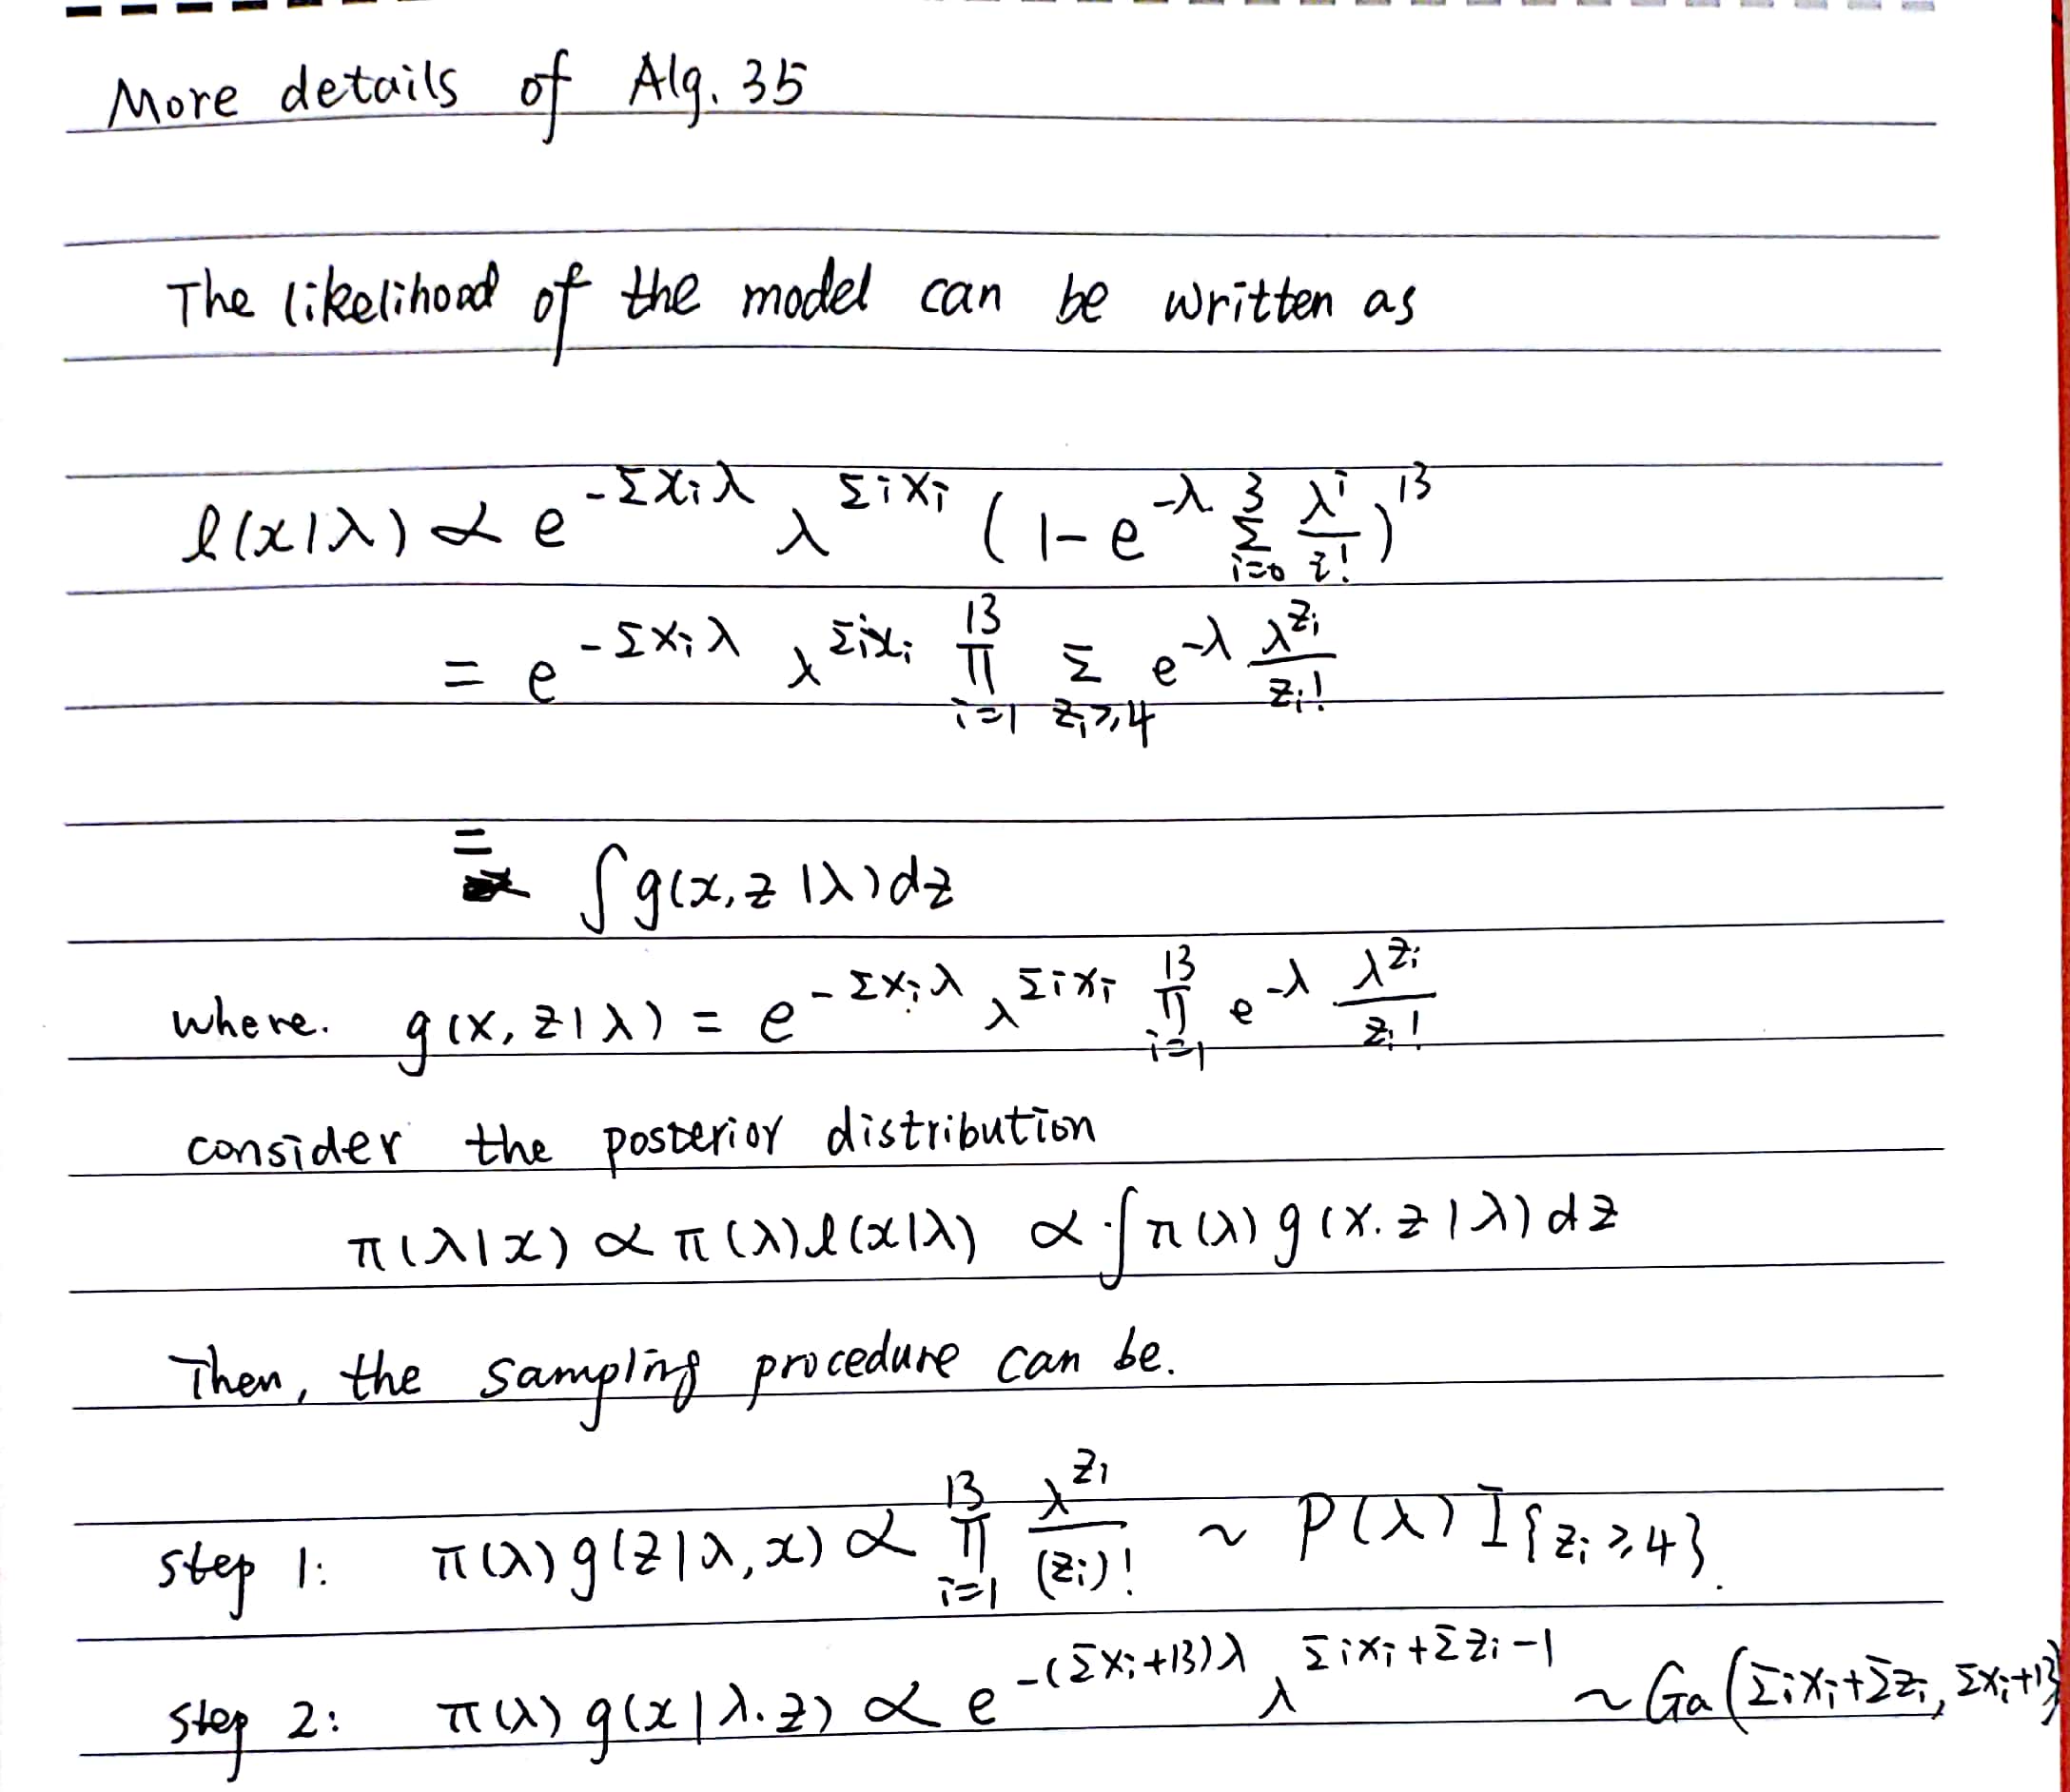 More details of Alg. 35
The likelihood of the model can be written as
ℓ(x|λ) ∝ e^{-Σx_iλ} λ^{Σix_i} (1-e^{-λ} Σ_{i=0}^{3} λ^i/i!)^{13}
= e^{-Σx_iλ} λ^{Σix_i} Π_{i=1}^{13} Σ_{z_i≥4} e^{-λ} λ^{z_i}/z_i!
= ∫g(x,z|λ)dz
where. g(x,z|λ) = e^{-Σx_iλ} λ^{Σix_i} Π_{i=1}^{13} e^{-λ} λ^{z_i}/z_i!
consider the posterior distribution
π(λ|x) ∝ π(λ)ℓ(x|λ) ∝ ∫π(λ)g(x.z|λ)dz
Then, the sampling procedure can be.
step 1: π(λ)g(z|λ,x) ∝ Π_{i=1}^{13} λ^{z_i}/(z_i)! ~ P(λ) I{z_i≥4}.
step 2: π(λ)g(x|λ.z) ∝ e^{-(Σx_i+13)λ} λ^{Σix_i+Σz_i-1} ~ Ga(Σix_i+Σz_i, Σx_i+13)